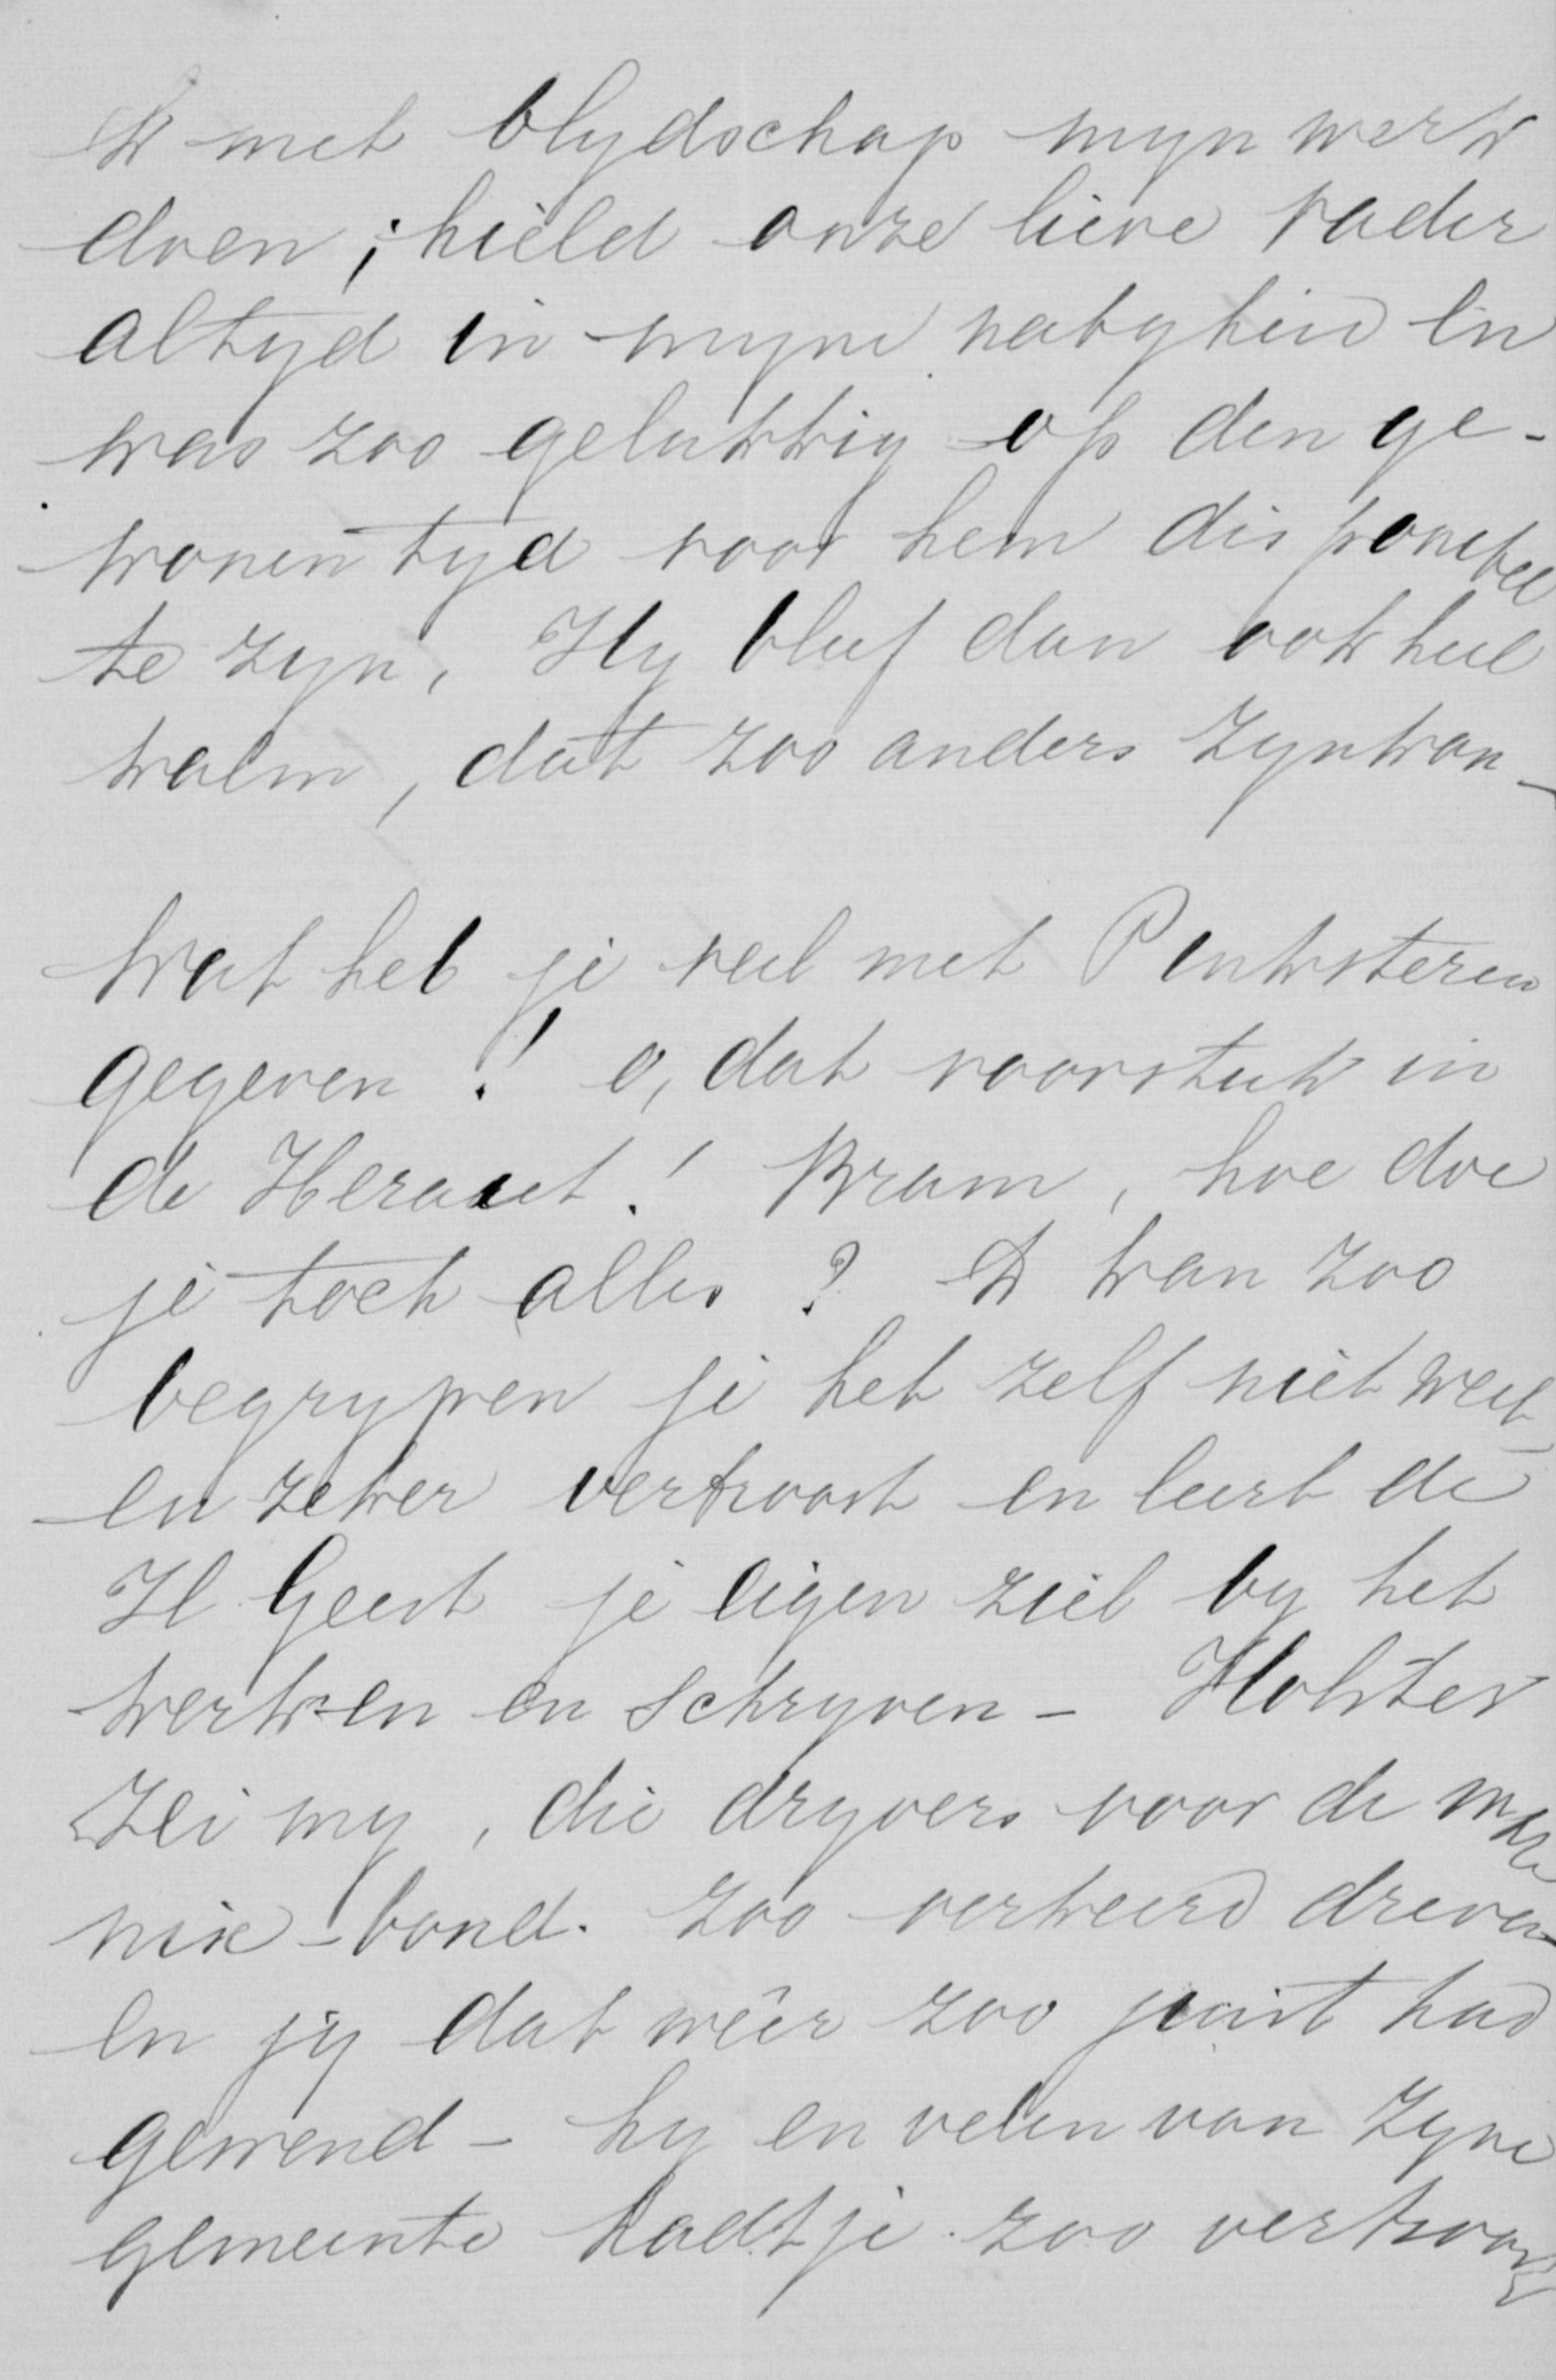 ik met blydschap myn werk
doen; hield onze lieve vader
altyd in myne nabyheid en
was zoo gelukkig op den ge-
wonen tyd voor hem disponibel
te zyn. Hy bleef dan ook heel
kalm, dat zoo anders zyn kan-

Wat heb je veel met Pinksteren
gegeven! o, dat voorstuk in
de Heraut! Bram, hoe doe
je toch alles? Ik kan zoo
begrypen je het zelf niet weet
en zeker vertroost en leert de
H. Geest je eigen ziel by het
werken en schryven - Hokster
zei my, die dryvers voor de
bond. zoo verkeerd dreven
en jy dat wêer zoo juist had
gewend - hy en velen van zyne
gemeente hadt je zoo vertroost